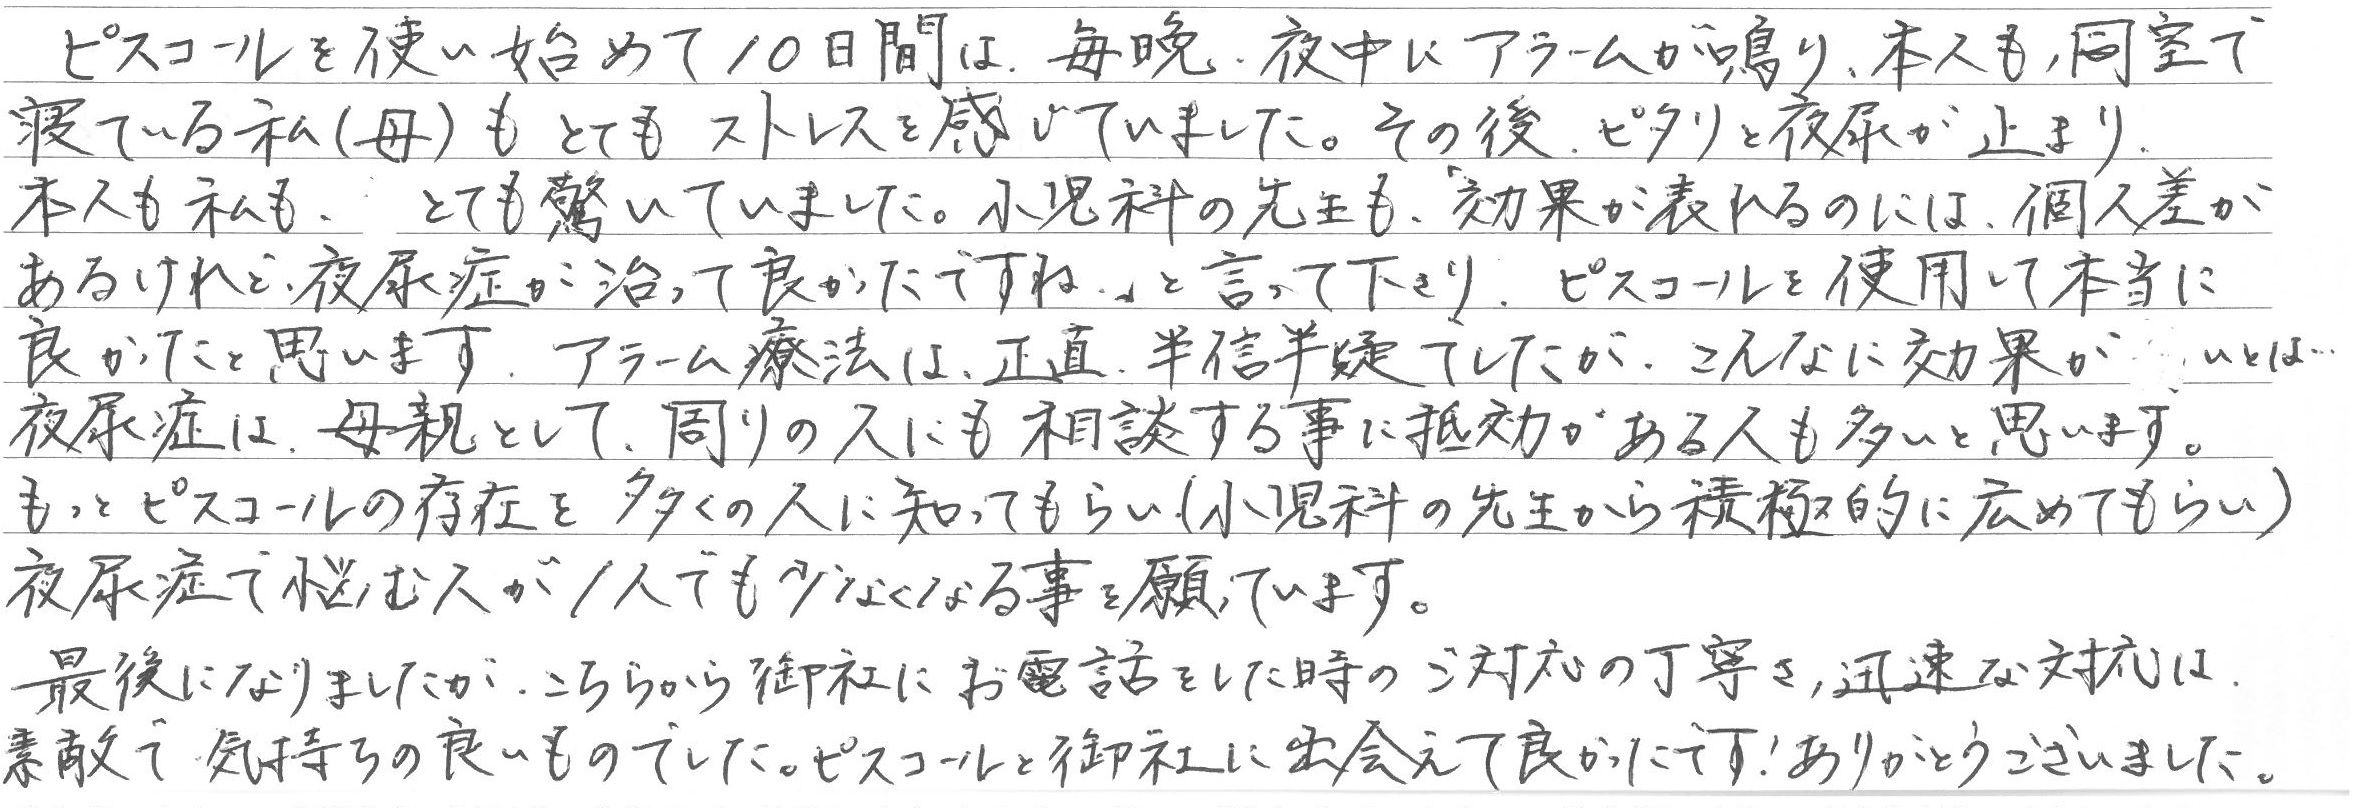 ピスコールを使い始めて10日間は、毎晩、夜中にアラームが鳴り、本人も、同室で
寝ている私(母)もとてもストレスを感じていました。その後、ピタリと夜尿が止まり、
本人も私も、とても驚いていました。小児科の先生も、「効果が表れるのには、個人差が
あるけれど、夜尿症が治って良かったですね。」と言って下さり、ピスコールを使用して本当に
良かったと思います。アラーム療法は、正直、半信半疑でしたが、こんなに効果が いとは…
夜尿症は、母親として、周りの人にも相談する事に抵効がある人も多いと思います。
もっとピスコールの存在を多くの人に知ってもらい(小児科の先生から積極的に広めてもらい)
夜尿症で悩む人が1人でも少なくなる事を願っています。
最後になりましたが、こちらから御社にお電話をした時のご対応の丁寧さ、迅速な対応は、
素敵で気持ちの良いものでした。ピスコールと御社に出会えて良かったです!ありがとうございました。